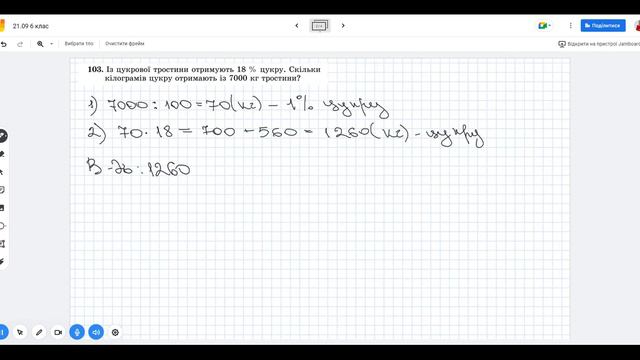 21.09 6 клас
2/4
Поділитися
Вибрати тло
Очистити фрейм
Відкрити на пристрої Jamboard
103. Із цукрової тростини отримують 18 % цукру. Скільки
кілограмів цукру отримають із 7000 кг тростини?
1) 7000 : 100 = 70 (кг) - 1% цукру
2) 70 · 18 = 700 + 560 = 1260 (кг) - цукру
В-дь : 1260